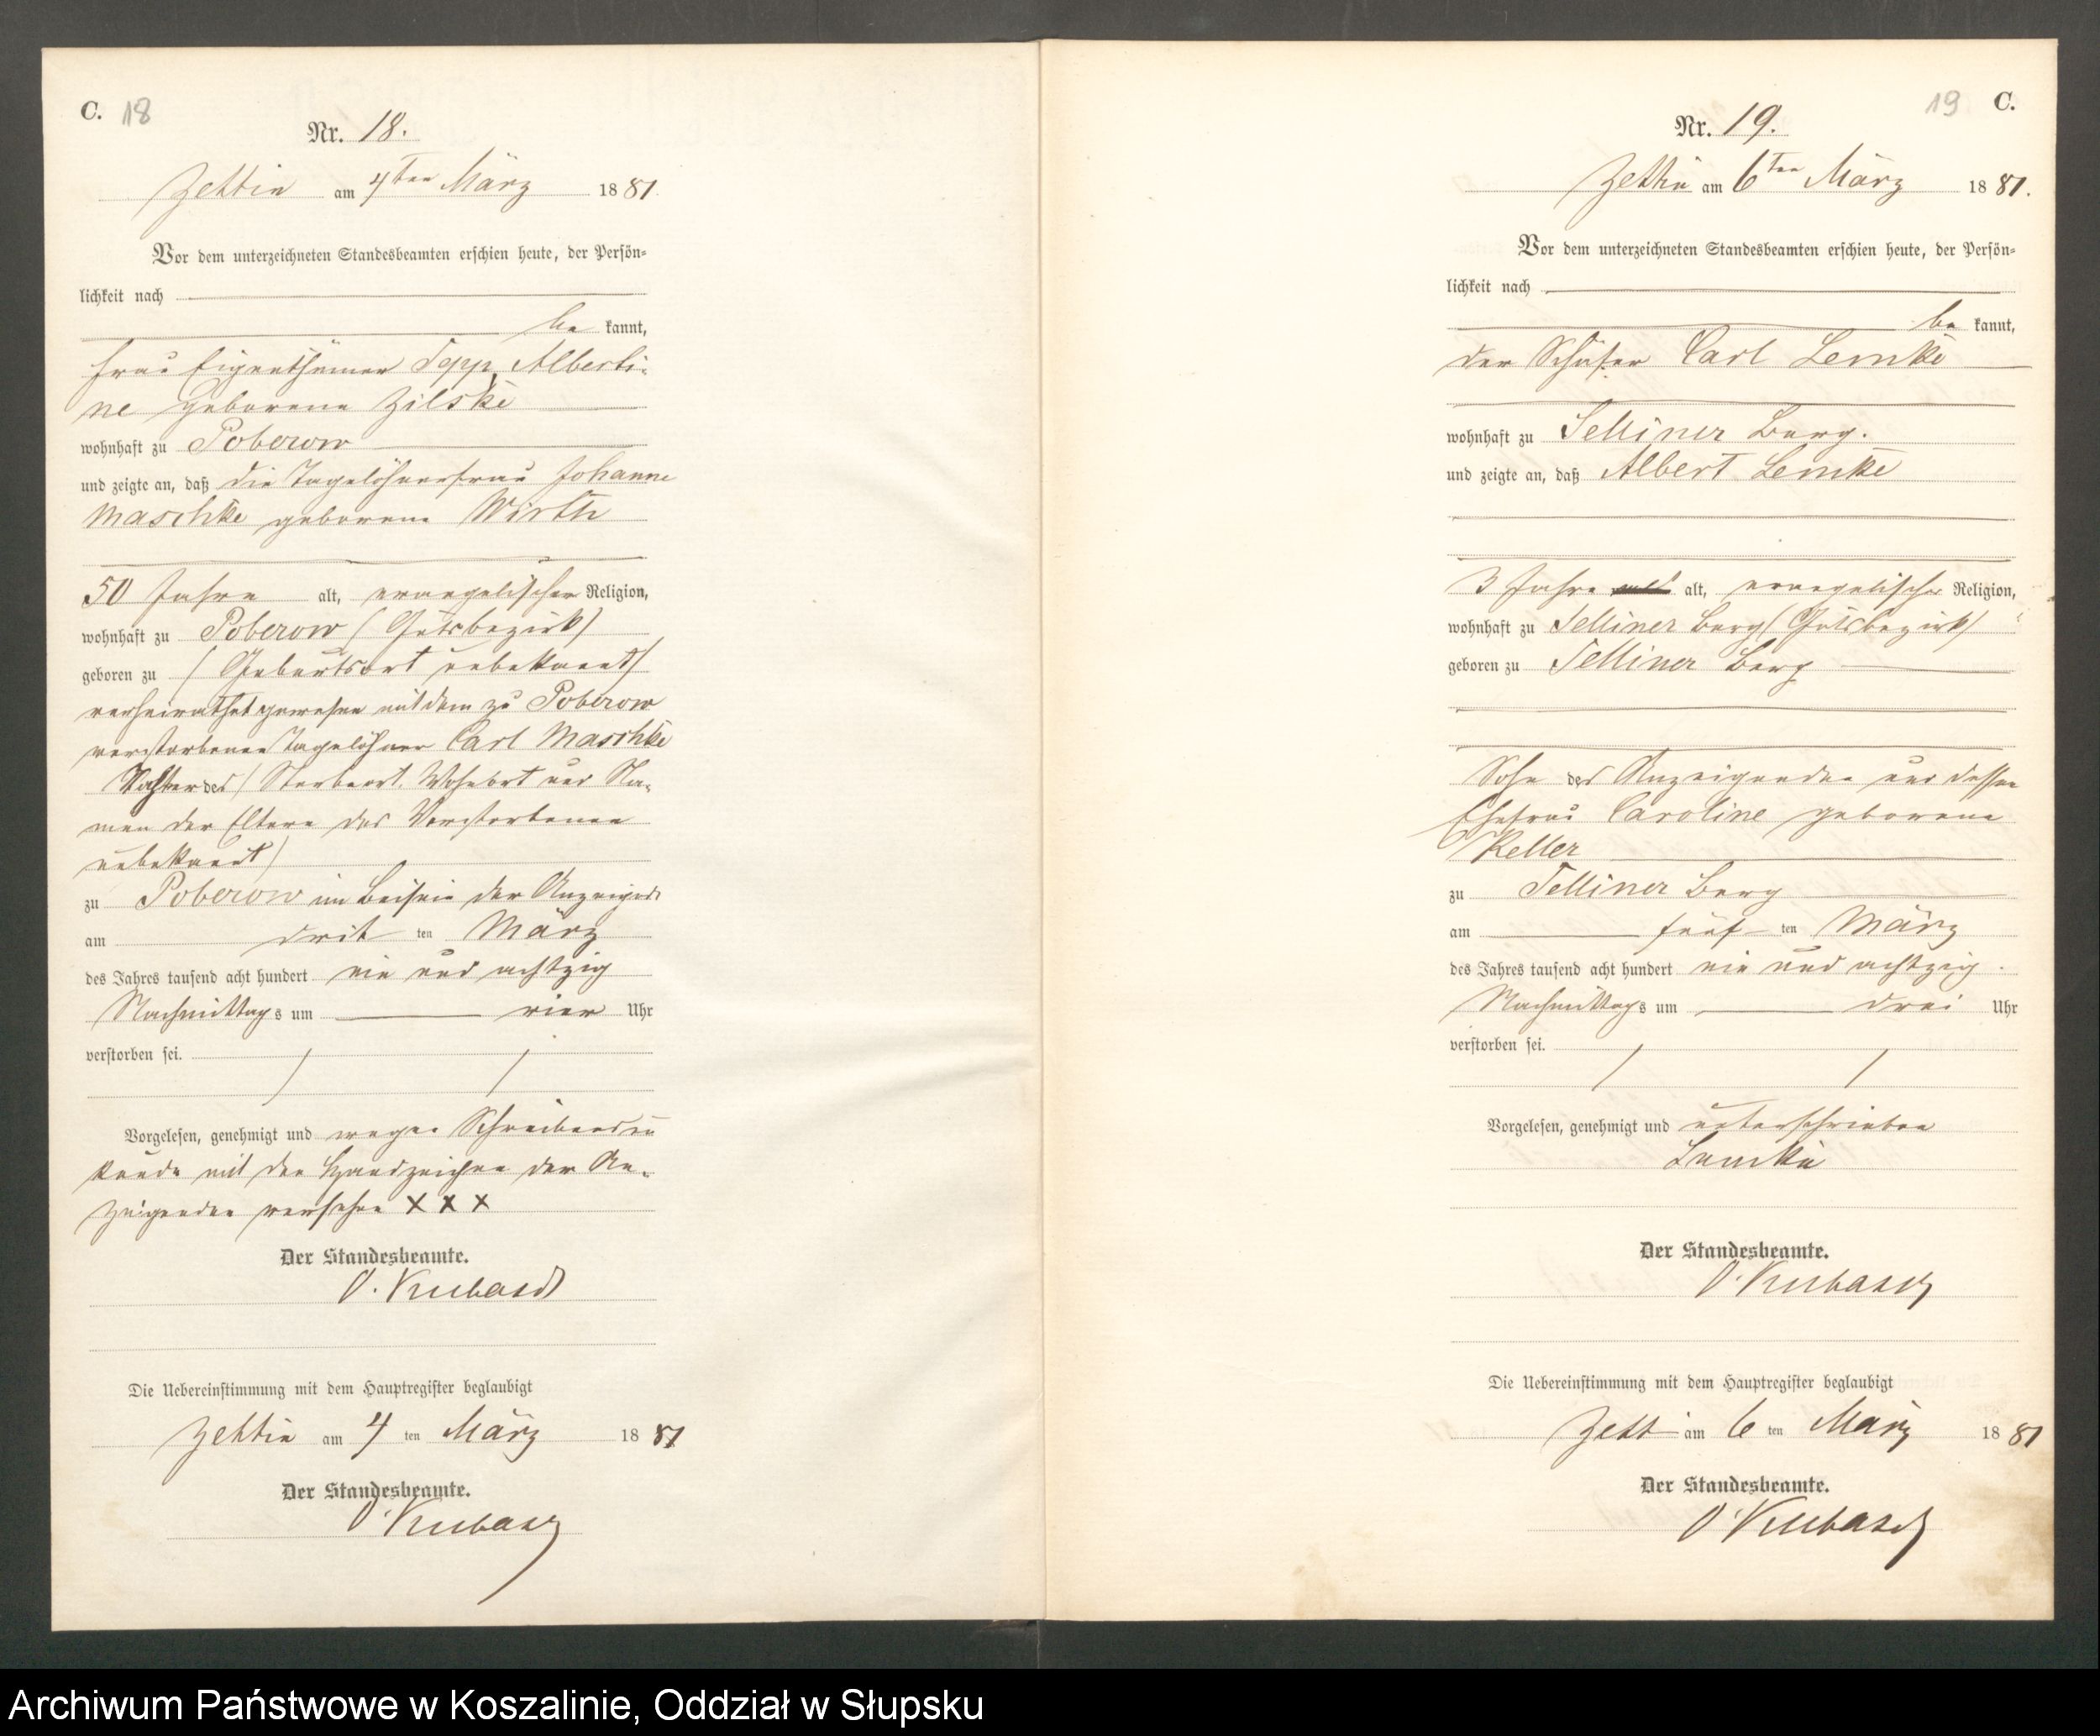 C. 18
Nr. 18.
Zettin am 4ten März 1881.
Vor dem unterzeichneten Standesbeamten erschien heute, der Persön-
lichkeit nach
be kannt,
Frau Eigenthümer Tepp, Alberti-
ne geborene Zilske
wohnhaft zu Poberow
und zeigte an, daß die Tagelöhnerfrau Johanne
Maschke geborene Wirth
50 Jahre alt, evangelischer Religion,
wohnhaft zu Poberow (Gutsbezirk)
geboren zu (Geburtsort unbekannt)
verheirathet gewesen mit dem zu Poberow
verstorbenen Tagelöhner Carl Maschke
Tochter des (Sterbeort, Wohnort und Na-
men der Eltern der Verstorbenen
unbekannt)
zu Poberow im Beisein der Anzeigende
am drit ten März
des Jahres tausend acht hundert ein und achtzig
Nachmittags um vier Uhr
verstorben sei.
Vorgelesen, genehmigt und wegen Schreibensun
kunde mit den Handzeichen der An-
zeigenden versehen XXX
Der Standesbeamte.
O. Kubasch
Die Uebereinstimmung mit dem Hauptregister beglaubigt
Zettin am 4 ten März 1881
Der Standesbeamte.
O. Kubasch
19 C.
Nr. 19.
Zettin am 6ten März 1881.
Vor dem unterzeichneten Standesbeamten erschien heute, der Persön-
lichkeit nach
be kannt,
der Schäfer Carl Lemke
wohnhaft zu Selliner Berg.
und zeigte an, daß Albert Lemke
3 Jahre alt, evangelischer Religion,
wohnhaft zu Selliner Berg (Gutsbezirk)
geboren zu Selliner Berg
Sohn des Anzeigenden und dessen
Ehefrau Caroline geborene
Keller
zu Selliner Berg
am fünf ten März
des Jahres tausend acht hundert ein und achtzig
Nachmittags um drei Uhr
verstorben sei.
Vorgelesen, genehmigt und unterschrieben
Lemke
Der Standesbeamte.
O. Kubasch
Die Uebereinstimmung mit dem Hauptregister beglaubigt
Zett am 6 ten März 1881
Der Standesbeamte.
O. Kubasch
Archiwum Państwowe w Koszalinie, Oddział w Słupsku